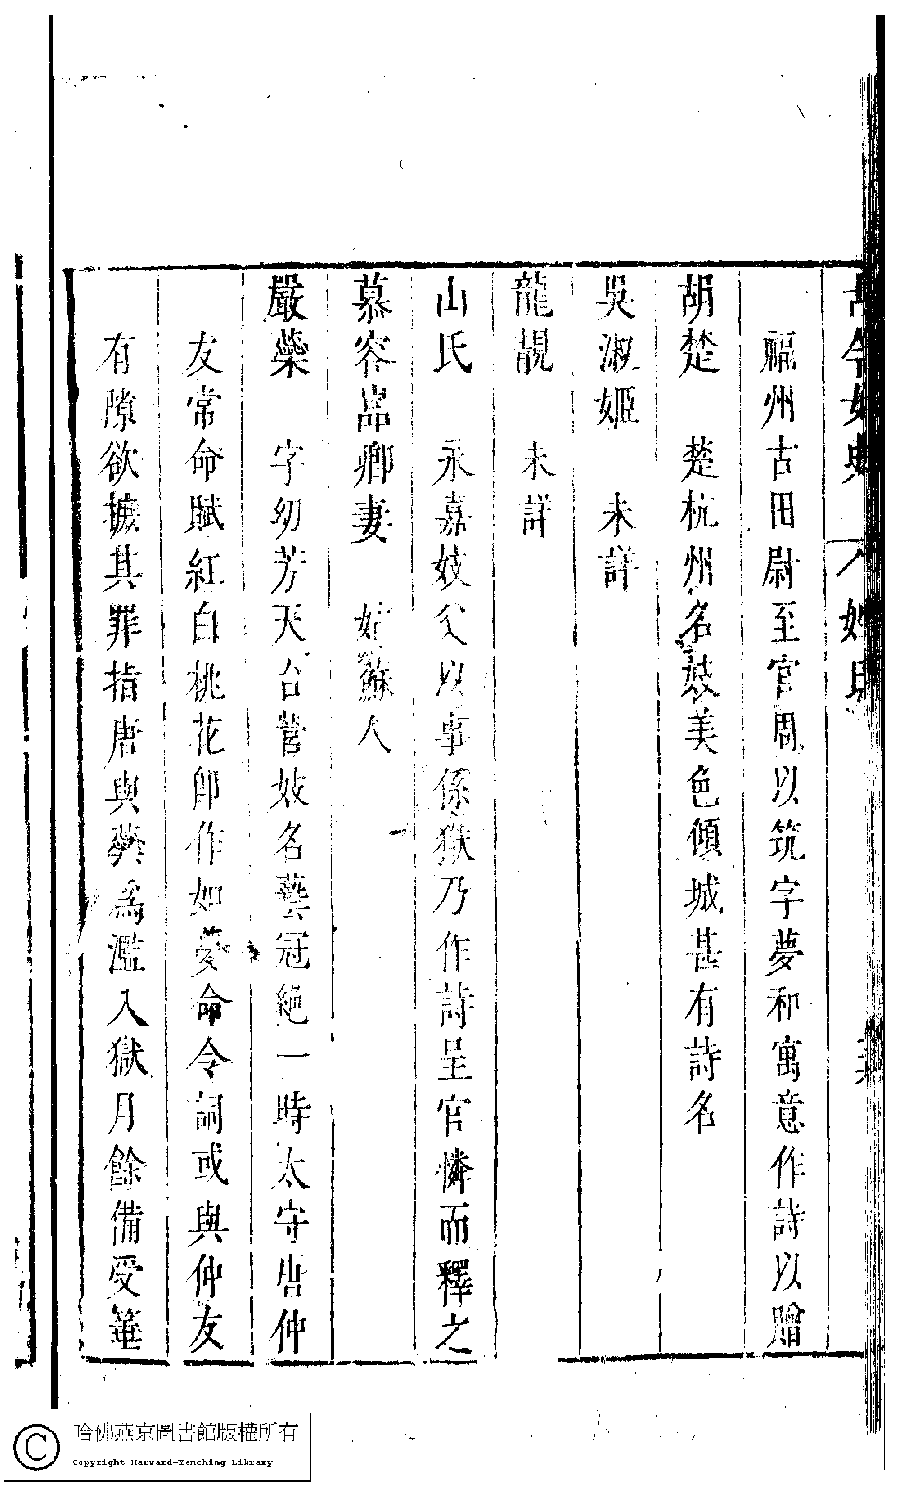 福州古田尉至官周以筑字夢和寓意作詩以贈
胡楚　楚杭州名妓美色傾城甚有詩名
吳淑姬　未詳
龍靚　未詳
山氏　永嘉妓父以事係獄乃作詩呈官憐而釋之
慕容嵓卿妻　姑蘇人
嚴蘂　字幼芳天台營妓名藝冠絕一時太守唐仲
友常命賦紅白桃花郎作如夢令詞或與仲友
有隙欲摭其罪指唐與蘂爲濫入獄月餘備受箠
哈佛燕京圖書館版權所有
Copyright Harvard-Yenching Library